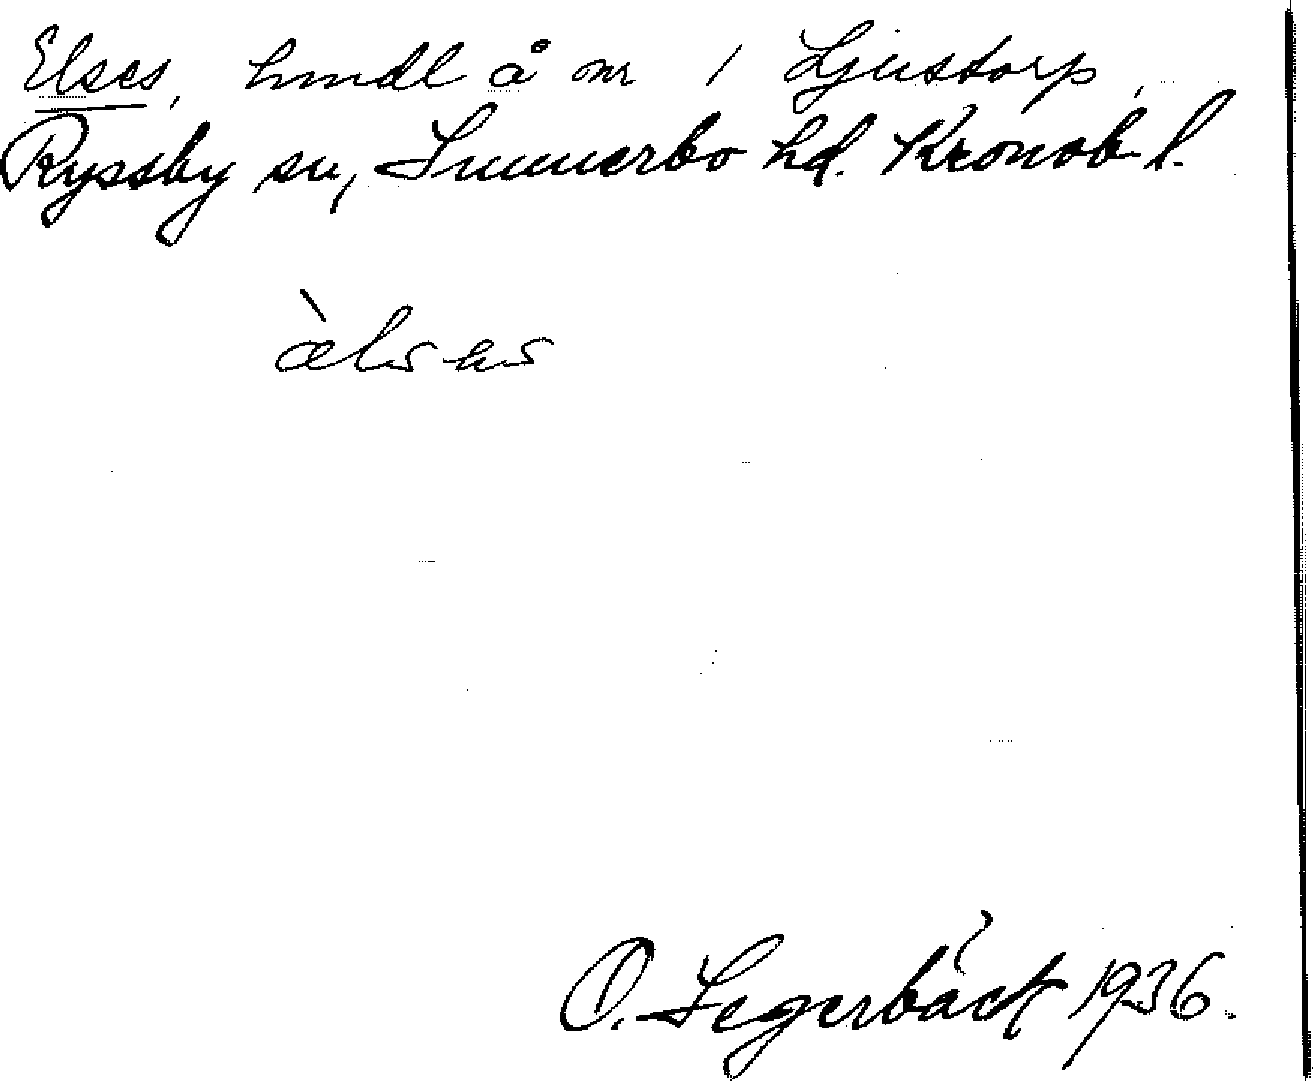 Elses, hmdl å nr 1 Ljustorp,
Ryssby sn, Sunnerbo hd. Kronob. l.
O. Segerbäck 1936.